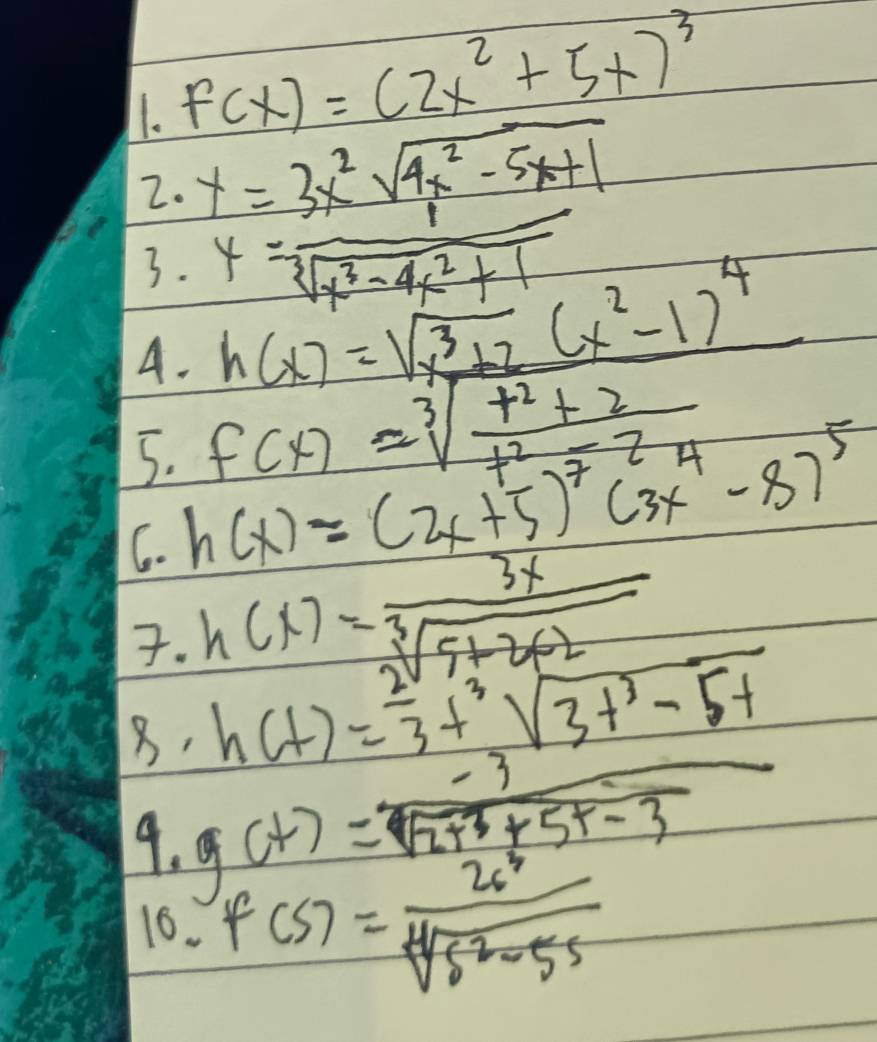 1. f(x) = (2x² + 5x)³
2. y = 3x² √(4x² - 5x + 1)
3. y = 1 / ∛(x³ - 4x² + 1)
4. h(x) = √(x³ + 2) (x² - 1)⁴
5. f(x) = ∛((t² + 2) / (t² - 2))
6. h(x) = (2x + 5)⁷ (3x⁴ - 8)⁵
7. h(x) = 3x / ∛
8. h(t) = 2/3 t³ √(3t³ - 5t)
9. g(t) = -3 / ∜(2t³ + 5t - 3)
10. f(s) = 2s³ / ∜(s² - 5s)